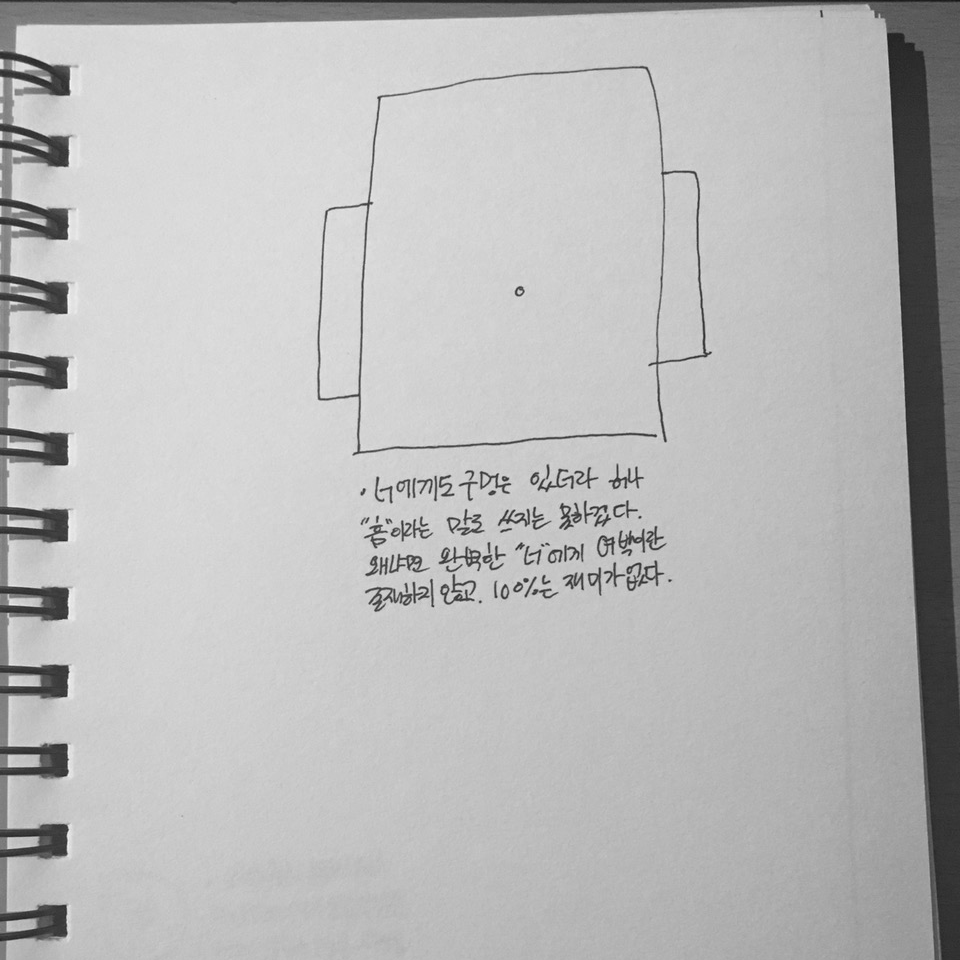 · 너에게도 구멍은 있더라 허나
"흠"이라는 말로 쓰지는 못하겠다.
왜냐면 완벽한 "너"에게 여백이란
존재하지 않고. 100%는 재미가 없다.